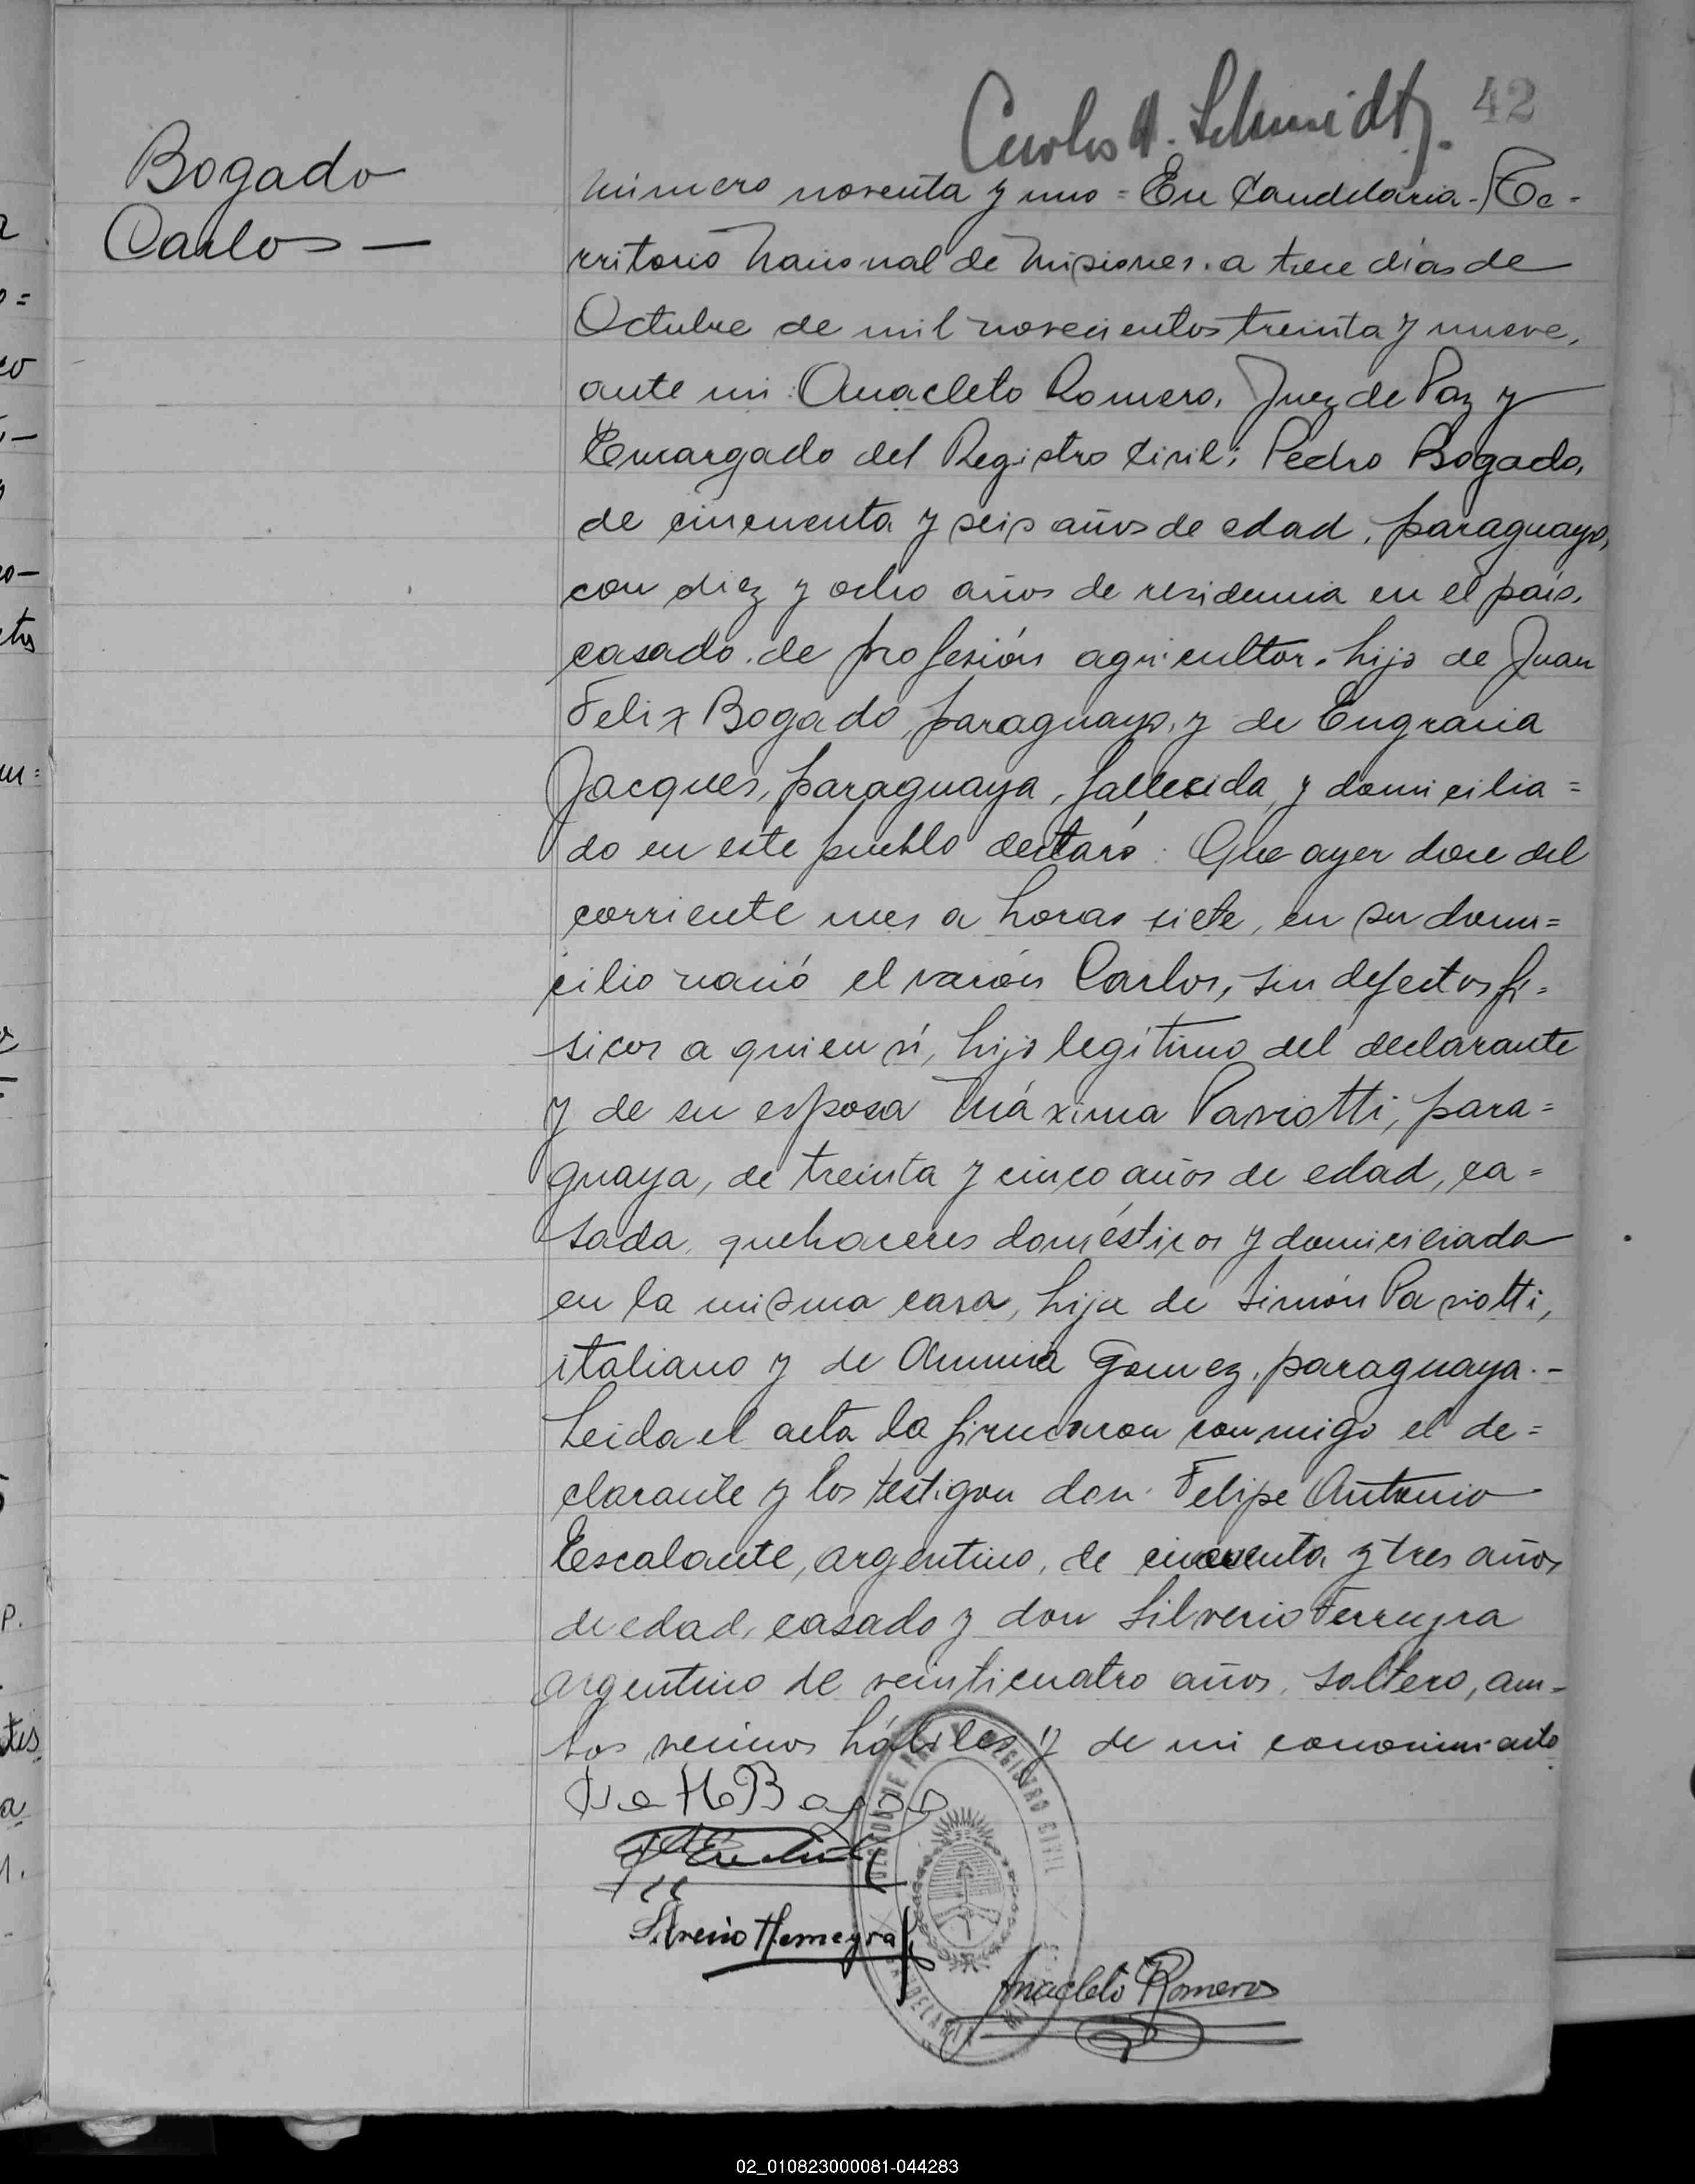 Carlos A. Schmidt. 42
Bogado
Carlos —
Número noventa y uno = En Candelaria - Te-
rritorio Nacional de Misiones. a trece días de
Octubre de mil novecientos treinta y nueve,
ante mi: Anacleto Romero, Juez de Paz y
Encargado del Registro Civil; Pedro Bogado,
de cincuenta y seis años de edad, paraguayo,
con diez y ocho años de residencia en el país,
casado, de profesión agricultor, hijo de Juan
Felix Bogado, paraguayo, y de Engracia
Jacques, paraguaya, fallecida, y domicilia=
do en este pueblo declaró: Que ayer doce del
corriente mes a horas siete, en su domi=
cilio nació el varón Carlos, sin defectos fí=
sicos a quien ví, hijo legítimo del declarante
y de su esposa Máxima Paviotti, para=
guaya, de treinta y cinco años de edad, ca=
sada, quehaceres domésticos y domiciliada
en la misma casa, hija de Simón Paviotti,
italiano y de Gomez, paraguaya.-
Leida el acta la firmaron conmigo el de=
clarante y los testigos don Felipe Antonio
Escalante, argentino, de cincuenta y tres años
de edad, casado y don Silverio Ferreyra
argentino de veinticuatro años, soltero, am-
bos vecinos hábiles y de mi conocimiento
Silverio Ferreyra
Anacleto Romero
REGISTRO CIVIL
CANDELARIA
02_010823000081-044283